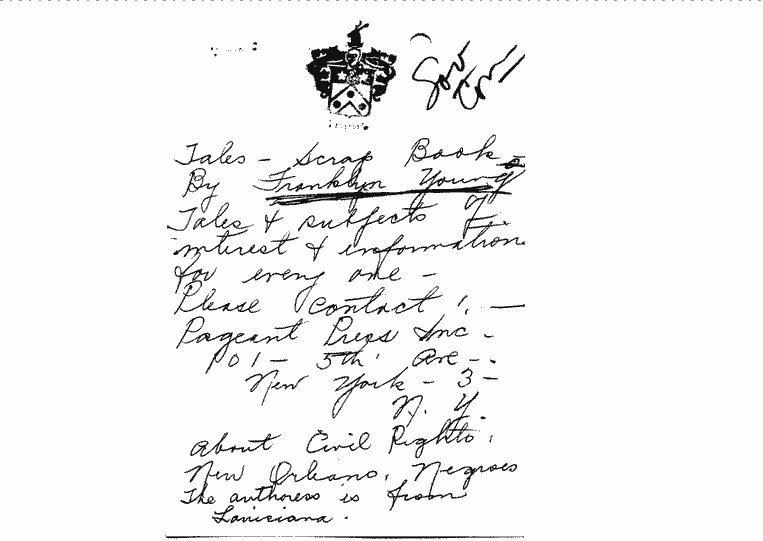 Tales - Scrap Book
By Franklyn Young
Tales & subjects of
interest & information
for every one -
Please contact! -
Pageant Press Inc -
101 - 5th Ave -.
New York - 3 -
N. Y.
About Civil Rights,
New Orleans, Negroes
The authoress is from
Louisiana.